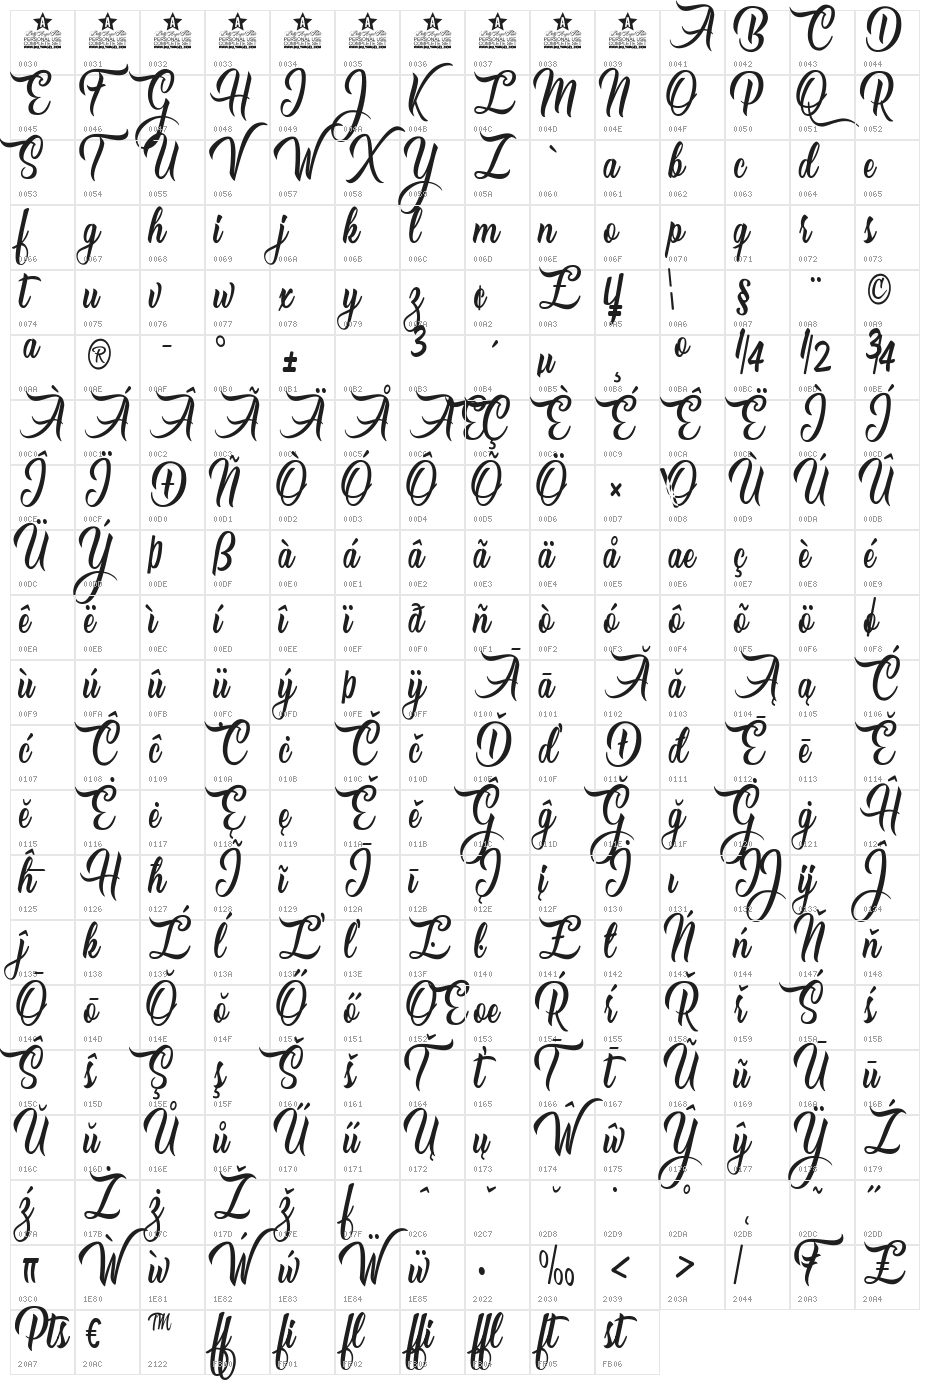 PERSONAL USE PERSONAL USE PERSONAL USE PERSONAL USE PERSONAL USE PERSONAL USE PERSONAL USE PERSONAL USE PERSONAL USE PERSONAL USE
COMPLETE SET COMPLETE SET COMPLETE SET COMPLETE SET COMPLETE SET COMPLETE SET COMPLETE SET COMPLETE SET COMPLETE SET COMPLETE SET
A B C D
0030 0031 0032 0033 0034 0035 0036 0037 0038 0039 0041 0042 0043 0044
E F G H I J K L M N O P Q R
0045 0046 0047 0048 0049 004A 004B 004C 004D 004E 004F 0050 0051 0052
S T U V W X Y Z ` a b c d e
0053 0054 0055 0056 0057 0058 0059 005A 0060 0061 0062 0063 0064 0065
f g h i j k l m n o p q r s
0066 0067 0068 0069 006A 006B 006C 006D 006E 006F 0070 0071 0072 0073
t u v w x y z ¢ £ ¥ ¦ § ¨ ©
0074 0075 0076 0077 0078 0079 007A 00A2 00A3 00A5 00A6 00A7 00A8 00A9
ª ® ¯ ° ± ³ ´ µ ¸ º ¼ ½ ¾
00AA 00AE 00AF 00B0 00B1 00B2 00B3 00B4 00B5 00B8 00BA 00BC 00BD 00BE
À Á Â Ã Ä Å Æ Ç È É Ê Ë Ì Í
00C0 00C1 00C2 00C3 00C4 00C5 00C6 00C7 00C8 00C9 00CA 00CB 00CC 00CD
Î Ï Ð Ñ Ò Ó Ô Õ Ö × Ø Ù Ú Û
00CE 00CF 00D0 00D1 00D2 00D3 00D4 00D5 00D6 00D7 00D8 00D9 00DA 00DB
Ü Ý Þ ß à á â ã ä å æ ç è é
00DC 00DD 00DE 00DF 00E0 00E1 00E2 00E3 00E4 00E5 00E6 00E7 00E8 00E9
ê ë ì í î ï ð ñ ò ó ô õ ö ø
00EA 00EB 00EC 00ED 00EE 00EF 00F0 00F1 00F2 00F3 00F4 00F5 00F6 00F8
ù ú û ü ý þ ÿ Ā ā Ă ă Ą ą Ć
00F9 00FA 00FB 00FC 00FD 00FE 00FF 0100 0101 0102 0103 0104 0105 0106
ć Ĉ ĉ Ċ ċ Č č Ď ď Đ đ Ē ē Ĕ
0107 0108 0109 010A 010B 010C 010D 010E 010F 0110 0111 0112 0113 0114
ĕ Ė ė Ę ę Ě ě Ĝ ĝ Ğ ğ Ġ ġ Ĥ
0115 0116 0117 0118 0119 011A 011B 011C 011D 011E 011F 0120 0121 0124
ĥ Ħ ħ Ĩ ĩ Ī ī Į į İ ı Ĳ ĳ Ĵ
0125 0126 0127 0128 0129 012A 012B 012E 012F 0130 0131 0132 0133 0134
ĵ ĸ Ĺ ĺ Ľ ľ Ŀ ŀ Ł ł Ń ń Ň ň
0135 0138 0139 013A 013D 013E 013F 0140 0141 0142 0143 0144 0147 0148
Ō ō Ŏ ŏ Ő ő Œ œ Ŕ ŕ Ř ř Ś ś
014C 014D 014E 014F 0150 0151 0152 0153 0154 0155 0158 0159 015A 015B
Ŝ ŝ Ş ş Š š Ť ť Ŧ ŧ Ũ ũ Ū ū
015C 015D 015E 015F 0160 0161 0164 0165 0166 0167 0168 0169 016A 016B
Ŭ ŭ Ů ů Ű ű Ų ų Ŵ ŵ Ŷ ŷ Ÿ Ź
016C 016D 016E 016F 0170 0171 0172 0173 0174 0175 0176 0177 0178 0179
ź Ż ż Ž ž ſ ˆ ˇ ˘ ˙ ˚ ˛ ˜ ˝
017A 017B 017C 017D 017E 017F 02C6 02C7 02D8 02D9 02DA 02DB 02DC 02DD
π Ẁ ẁ Ẃ ẃ Ẅ ẅ • ‰ ‹ › ⁄ ₣ ₤
03C0 1E80 1E81 1E82 1E83 1E84 1E85 2022 2030 2039 203A 2044 20A3 20A4
₧ € ™ ﬀ ﬁ ﬂ ﬃ ﬄ ﬅ ﬆ
20A7 20AC 2122 FB00 FB01 FB02 FB03 FB04 FB05 FB06